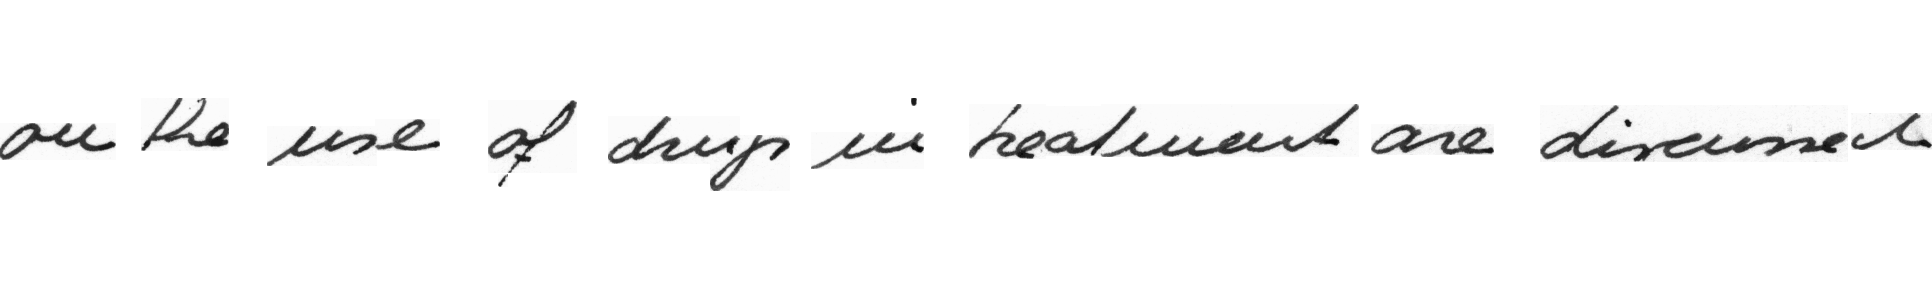 on the use of drugs in treatment are discussed